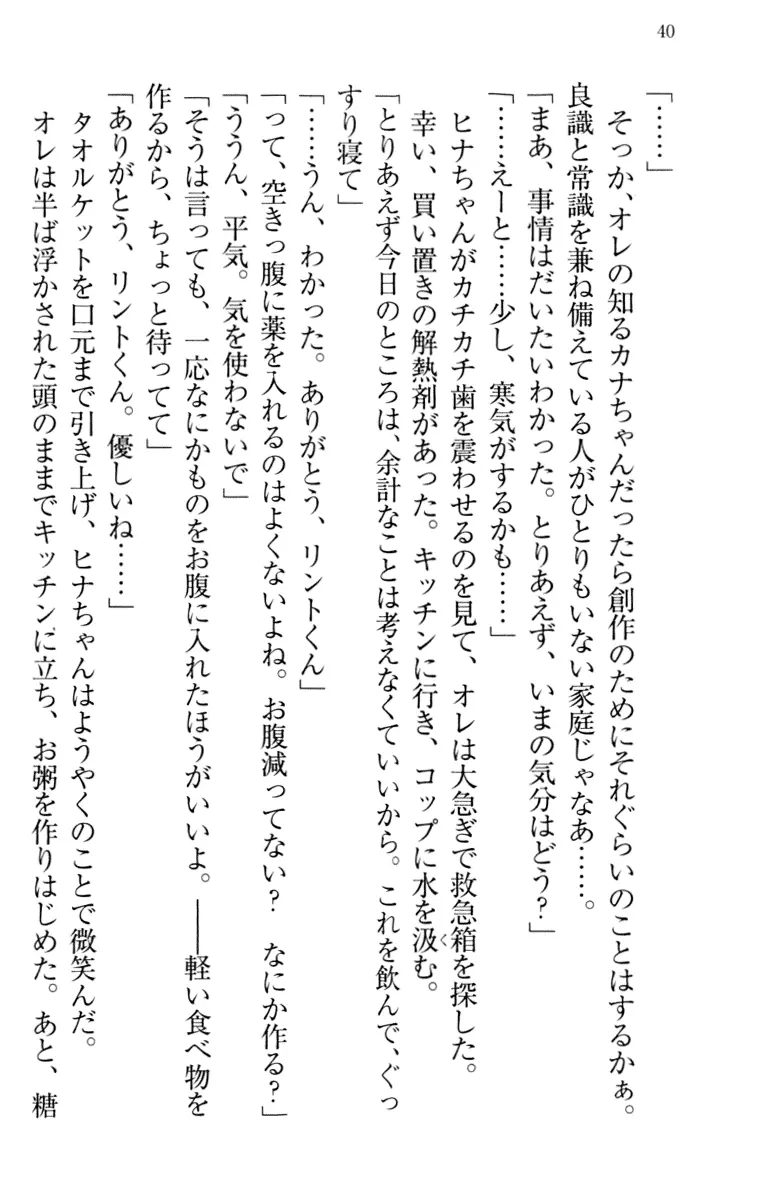 40
「……」
そっか、オレの知るカナちゃんだったら創作のためにそれぐらいのことはするかぁ。
良識と常識を兼ね備えている人がひとりもいない家庭じゃなあ……。
「まあ、事情はだいたいわかった。とりあえず、いまの気分はどう？」
「……えーと……少し、寒気がするかも……」
ヒナちゃんがカチカチ歯を震わせるのを見て、オレは大急ぎで救急箱を探した。
幸い、買い置きの解熱剤があった。キッチンに行き、コップに水を汲む。
「とりあえず今日のところは、余計なことは考えなくていいから。これを飲んで、ぐっ
すり寝て」
「……うん、わかった。ありがとう、リントくん」
「って、空きっ腹に薬を入れるのはよくないよね。お腹減ってない？　なにか作る？」
「ううん、平気。気を使わないで」
「そうは言っても、一応なにかものをお腹に入れたほうがいいよ。――軽い食べ物を
作るから、ちょっと待ってて」
「ありがとう、リントくん。優しいね……」
タオルケットを口元まで引き上げ、ヒナちゃんはようやくのことで微笑んだ。
オレは半ば浮かされた頭のままでキッチンに立ち、お粥を作りはじめた。あと、糖